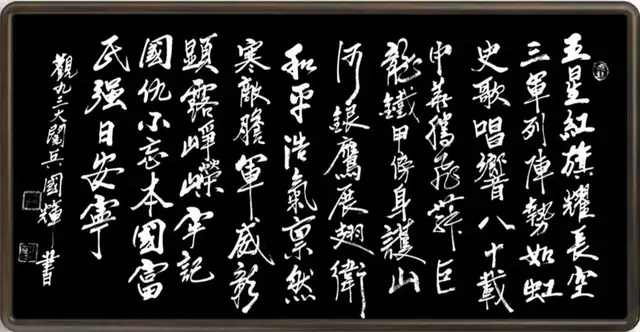 五星紅旗耀長空
三軍列陣勢如虹
史歌唱響八十載
中華騰飛舞巨
龍鐵甲傍身護山
河銀鷹展翅衛
和平浩氣禀然
寒敵膽軍威彰
顕露崢嶸牢記
國仇不忘本國富
民强日安寧
觀九三大閱兵國輝書